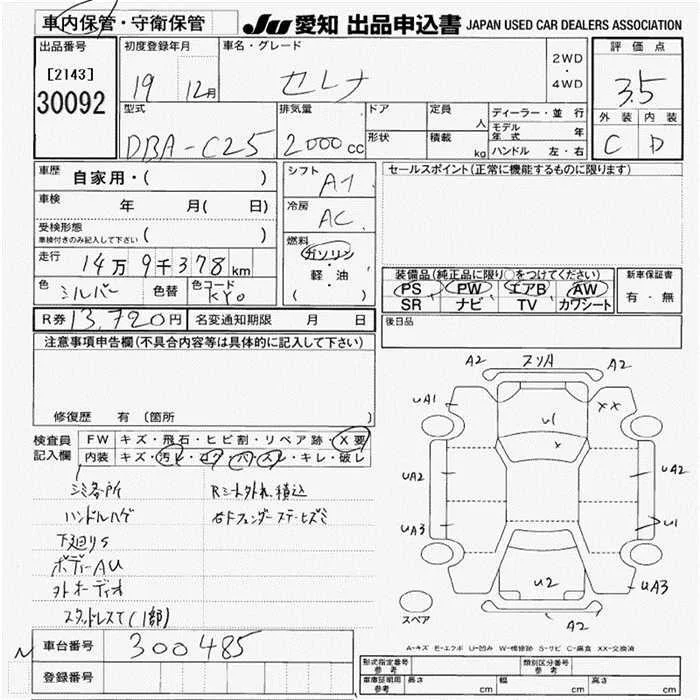 車内保管・守衛保管
JU 愛知 出品申込書 JAPAN USED CAR DEALERS ASSOCIATION
出品番号
[2143]
30092
初度登録年月
19 12月
車名・グレード
セレナ
2WD
・
4WD
評価点
3.5
外装 内装
C D
型式
DBA-C25
排気量
2000cc
ドア
形状
定員 人
積載 kg
ディーラー・並行
モデル年式 年
ハンドル 左・右
車歴 自家用・( )
車検 年 月( 日)
受検形態
車検付きのみ記入して下さい ( )
走行 14万9千378km
色 シルバー 色替 色コード KY0
シフト AT
冷房 AC
燃料
ガソリン
・
軽・油
( )
セールスポイント(正常に機能するものに限ります)
装備品(純正品に限り○をつけてください)
PS PW エアB AW
SR ナビ TV カワシート
新車保証書
有・無
R券 13,720円 名変通知期限 月 日
後日品
注意事項申告欄(不具合内容等は具体的に記入して下さい)
修復歴 有 〔箇所 〕
検査員記入欄
FW キズ・飛石・ヒビ割・リペア跡・X要
内装 キズ・汚レ・コゲ・ハ・スレ・キレ・破レ
シミ各所
ハンドルハゲ
下廻りS
ボディーAU
外オーディオ
スタッドレスT(1部)
Rシート外れ積込
右Fフェンダーステーヒズミ
A2 スリA A2
UA1
XX
U1
X
UA2
UA2
UA3
U1
U2
UA3
A2
スペア
A-キズ E-エクボ U-凹み W-補修跡 S-サビ C-腐食 XX-交換済
車台番号 300485
登録番号
形式指定番号 参考
類別区分番号 参考
車庫証明用 参考 長さ cm 幅 cm 高さ cm